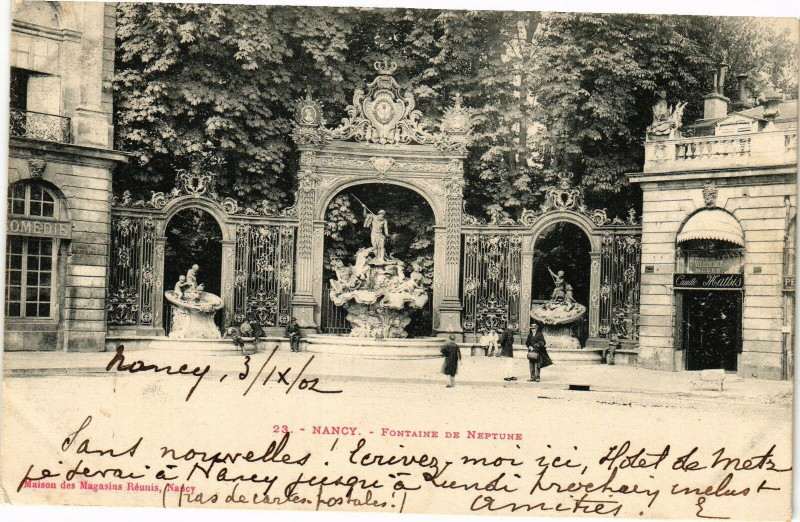 COMEDIE
Camille Mathis
Nancy, 3/IX/02
23. - NANCY. - FONTAINE DE NEPTUNE
Sans nouvelles ! Ecrivez-moi ici, Hotel de Metz
je serai à Nancy jusqu'à Lundi prochain inclus
Maison des Magasins Réunis, Nancy
(pas de cartes-postales !) Amitiés. E